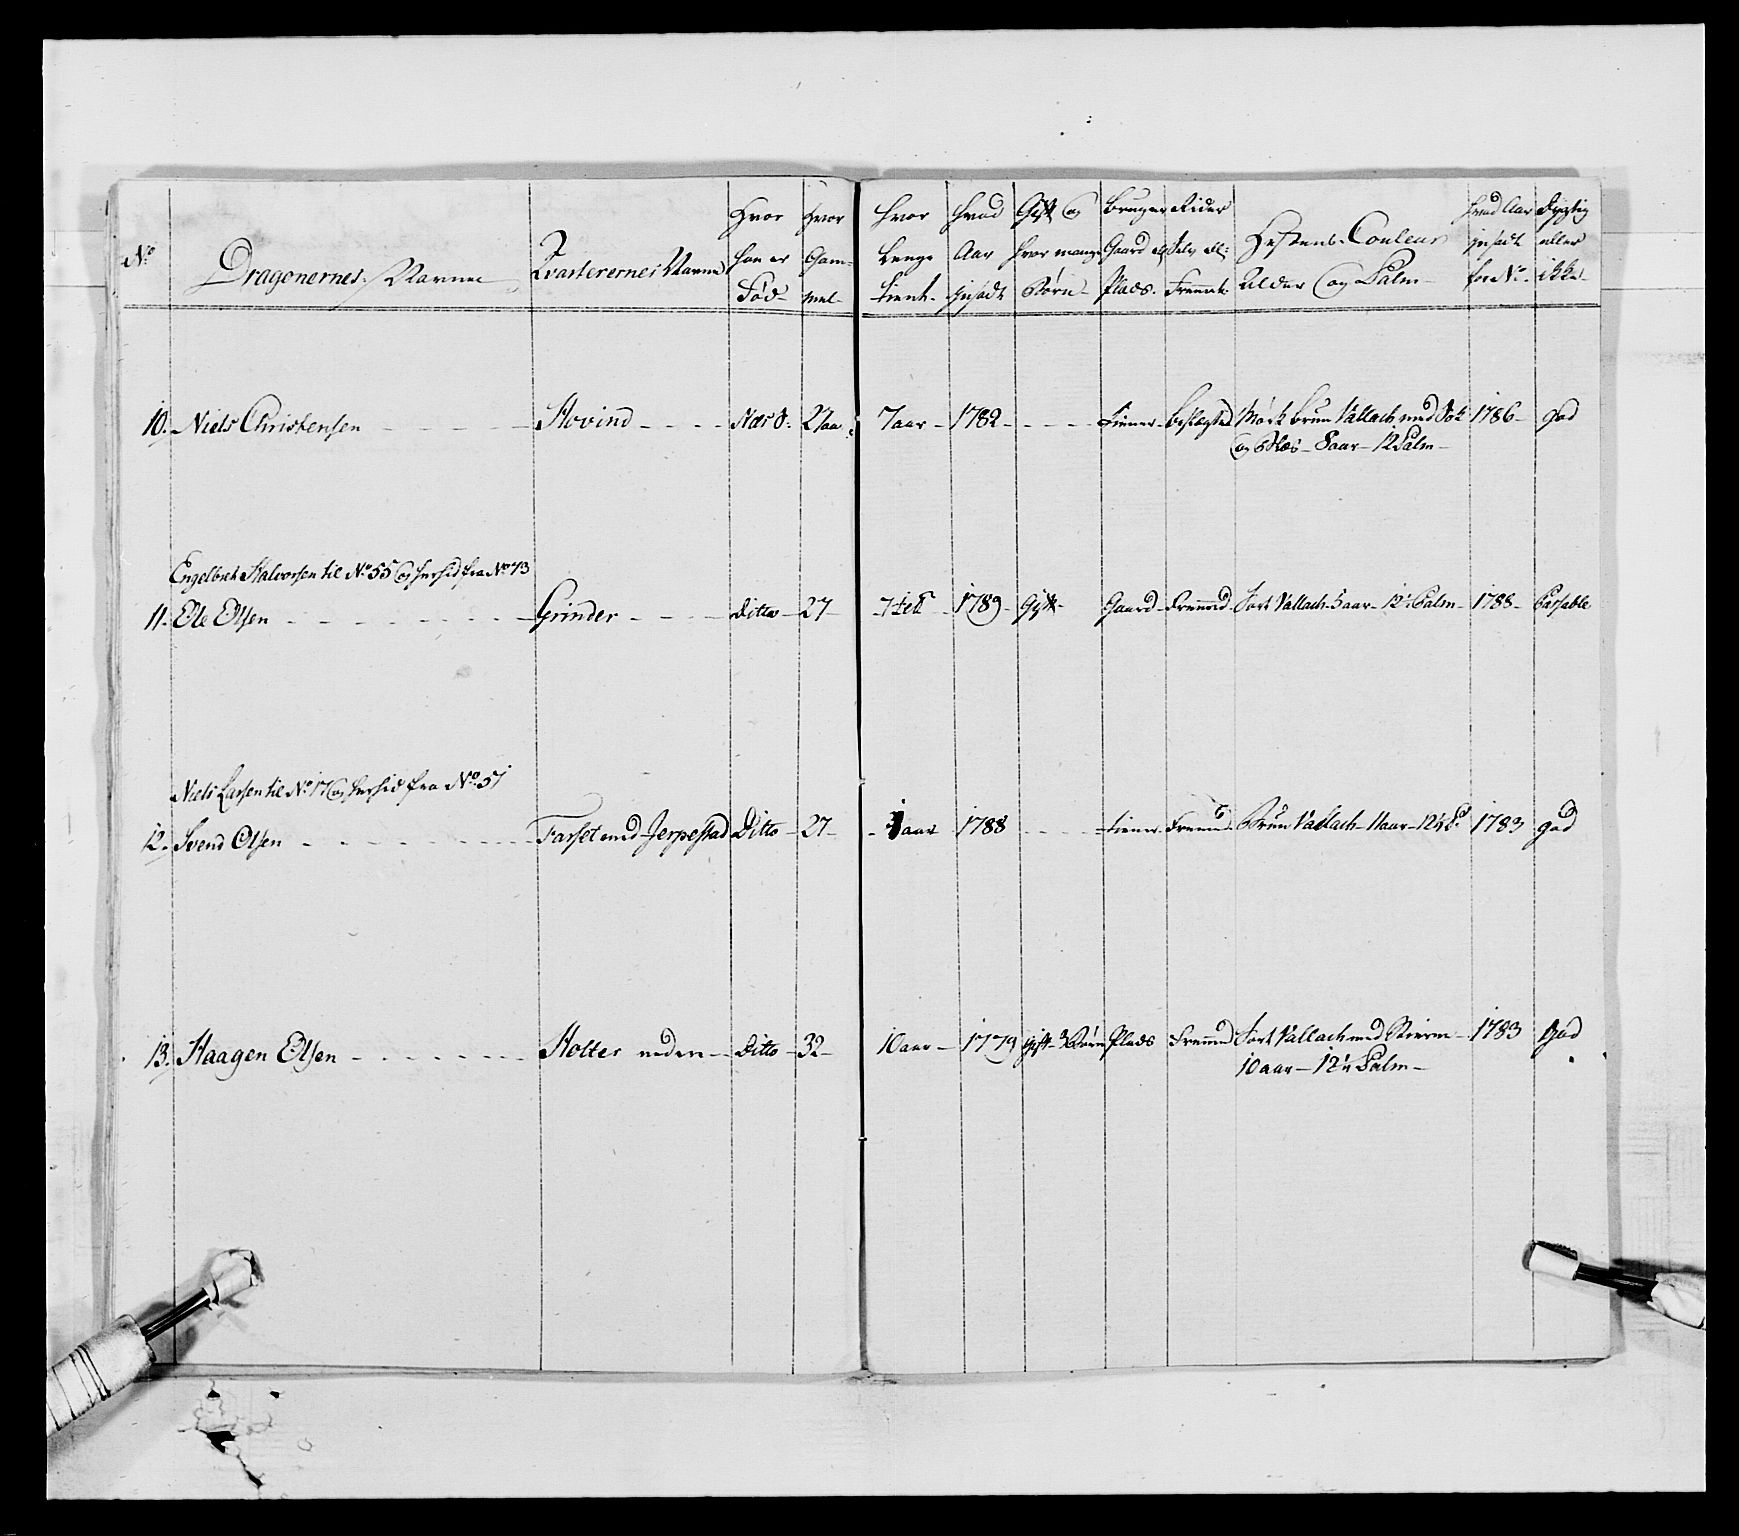 No | Dragonernes Navne | Qvarterernes Navne | Hvor han er Fød | Hvor Gammel | Hvor Lenge tient | Hvad Aar Indsadt | Gift og hvor mange Børn | Bruger Gaard el: Plads | Rider Selv el: Fremd | Hestens Couleur Alder og Palm | Hvad Aar indsadt for No | Dygtig eller ikke
10. Niels Christensen | Hovind | Næs | 27 aar | 7 aar | 1782 | | tiener | Beslægted | Mørk brun Vallach med Sok | 1786 | god
og Blis - 8 aar - 12 Palm
Engelbret Halvorsen til No 55 og hersid fra No 73
11. Ole Olsen | Grinder | Ditto | 27 | | 1789 | Gift | Gaard | Fremmed | Sort Vallach 5 aar - 12 Palm | 1788 | Passable
Niels Larsen til No 17 og hersid fra No 51
12. Svend Olsen | Farset med Jerpestad | Ditto | 27 | 1 aar | 1788 | | tiener | Fremmed | Brun Vallach 11 aar - 12½ P. | 1783 | god
13. Haagen Olsen | Holter neden | Ditto | 32 | 10 aar | 1779 | gift 3 Børn | Plads | Fremmed | Sort Vallach med Stierne | 1783 | God
10 aar - 12½ Palm